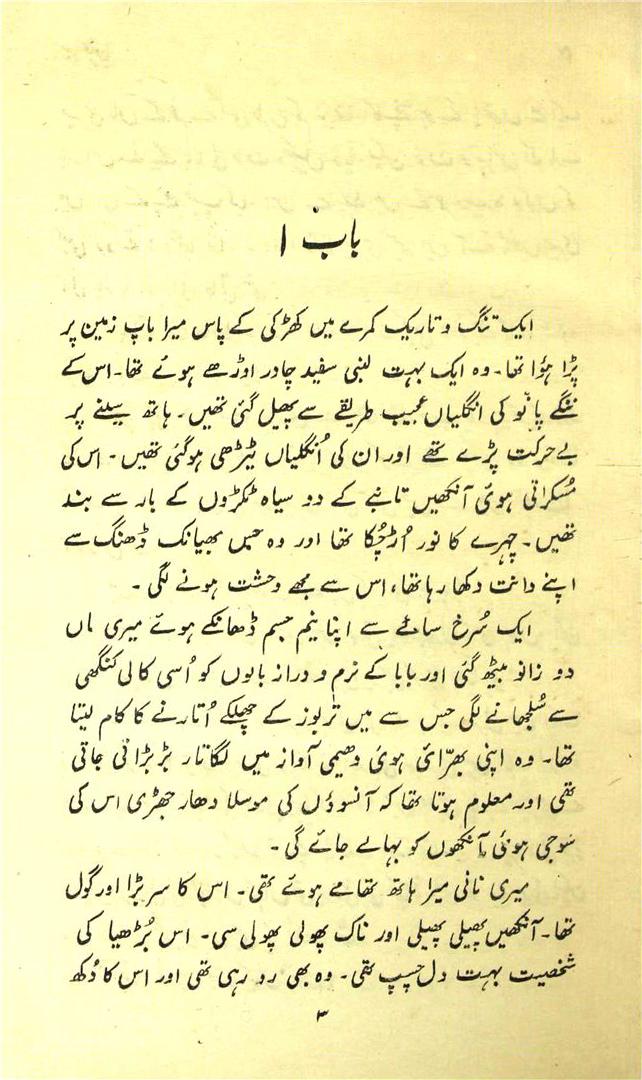 باب ۱
ایک تنگ و تاریک کمرے میں کھڑکی کے پاس میرا باپ زمین پر
پڑا ہؤا تھا۔ وہ ایک بہت لنبی سفید چادر اوڑھے ہوئے تھا۔ اس کے
ننگے پانو کی انگلیاں عجیب طریقے سے پھیل گئی تھیں۔ ہاتھ سینے پر
بے حرکت پڑے تھے اور ان کی اُنگلیاں ٹیڑھی ہوگئی تھیں۔ اس کی
مُسکراتی ہوئی آنکھیں تانبے کے دو سیاہ ٹکڑوں کے بار سے بند
تھیں۔ چہرے کا نور اُڑچُکا تھا اور وہ جس بھیانک ڈھنگ سے
اپنے دانت دکھا رہا تھا، اس سے مجھے وحشت ہونے لگی۔
ایک سُرخ سائے سے اپنا نیم جسم ڈھانکے ہوئے میری ماں
دو زانو بیٹھ گئی اور بابا کے نرم و دراز بالوں کو اُسی کالی کنگھی
سے سُلجھانے لگی جس سے میں تربوز کے چھلکے اُتارنے کا کام لیتا
تھا۔ وہ اپنی بھرّائی ہوئی دھیمی آواز میں لگاتار بڑبڑاتی جاتی
تھی اور معلوم ہوتا تھا کہ آنسوؤں کی موسلا دھار جھڑی اس کی
سوجی ہوئی آنکھوں کو بہالے جائے گی۔
میری نانی میرا ہاتھ تھامے ہوئے تھی۔ اس کا سر بڑا اور گول
تھا۔ آنکھیں پھیلی پھیلی اور ناک پھولی پھولی سی۔ اس بُڑھیا کی
شخصیت بہت دل چسپ تھی۔ وہ بھی رو رہی تھی اور اس کا دُکھ
۳